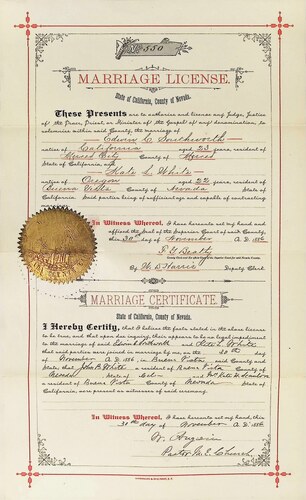 550
MARRIAGE LICENSE.
State of California, County of Nevada.
These Presents are to authorize and license any Judge, Justice
of the Peace, Priest, or Minister of the Gospel of any denomination, to
solemnize within said County, the marriage of
Edwin C. Southworth
native of California aged 23 years, resident of
County of
State of California, and
Kate L. White
native of Oregon aged 22 years, resident of
Buena Vista County of Nevada State of
California. Said parties being of sufficient age and capable of contracting
In Witness Whereof, I have hereunto set my hand and
affixed the Seal of the Superior Court of said County,
this 30th day of November A. D. 1886
F. G. Beatty
By W. D. Harris Deputy Clerk.
MARRIAGE CERTIFICATE.
State of California, County of Nevada.
I Hereby Certify, that I believe the facts stated in the above license
to be true, and that upon due inquiry, there appears to be no legal impediment
to the marriage of said Edwin C. Southworth and Kate L. White
that said parties were joined in marriage by me, on the 30th day
of November A. D. 1886, in Buena Vista said County and
State; that John B. White, a resident of Buena Vista County of
Nevada State of and Mrs.
a resident of Buena Vista County of Nevada State of
California, were present as witnesses of said ceremony.
In Witness Whereof, I have hereunto set my hand, this
30th day of November A. D. 1886.
Pastor M. E. Church